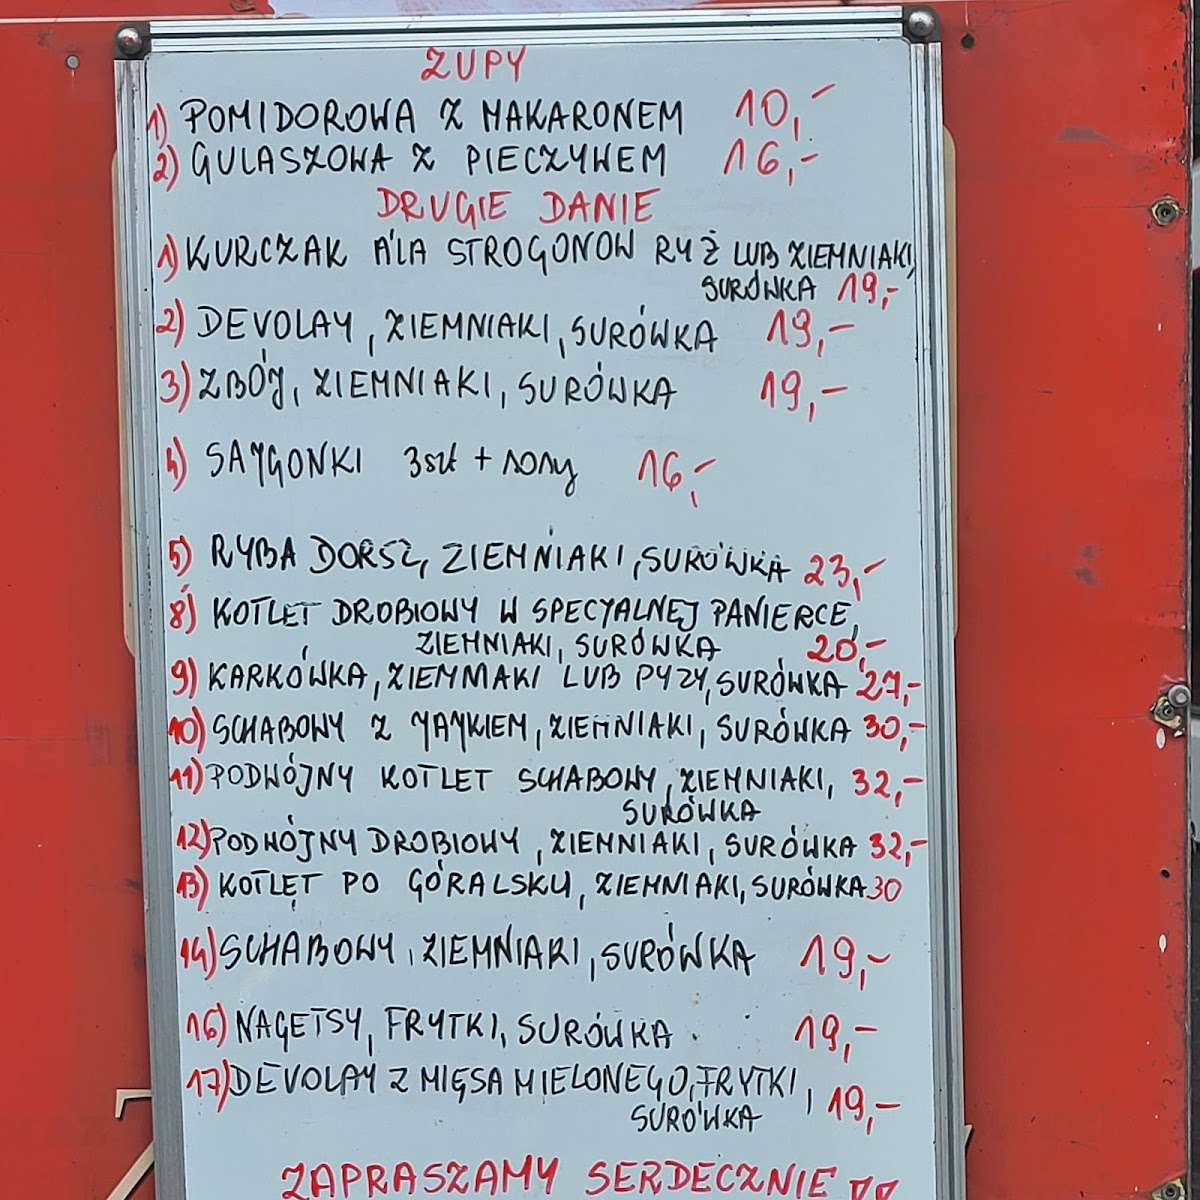 ZUPY
1) POMIDOROWA Z MAKARONEM 10,-
2) GULASZOWA Z PIECZYWEM 16,-
DRUGIE DANIE
1) KURCZAK A'LA STROGONOW RYŻ LUB ZIEMNIAKI,
SURÓWKA 19,-
2) DEVOLAY, ZIEMNIAKI, SURÓWKA 19,-
3) ZBÓJ, ZIEMNIAKI, SURÓWKA 19,-
4) SAJGONKI 3szt + sosy 16,-
5) RYBA DORSZ, ZIEMNIAKI, SURÓWKA 23,-
8) KOTLET DROBIOWY W SPECJALNEJ PANIERCE,
ZIEMNIAKI, SURÓWKA 20,-
9) KARKÓWKA, ZIEMNIAKI LUB PYZY, SURÓWKA 27,-
10) SCHABOWY Z JAJKIEM, ZIEMNIAKI, SURÓWKA 30,-
11) PODWÓJNY KOTLET SCHABOWY, ZIEMNIAKI, 32,-
SURÓWKA
12) PODWÓJNY DROBIOWY, ZIEMNIAKI, SURÓWKA 32,-
13) KOTLET PO GÓRALSKU, ZIEMNIAKI, SURÓWKA 30
14) SCHABOWY, ZIEMNIAKI, SURÓWKA 19,-
16) NAGETSY, FRYTKI, SURÓWKA 19,-
17) DEVOLAY Z MIĘSA MIELONEGO, FRYTKI,
SURÓWKA 19,-
ZAPRASZAMY SERDECZNIE